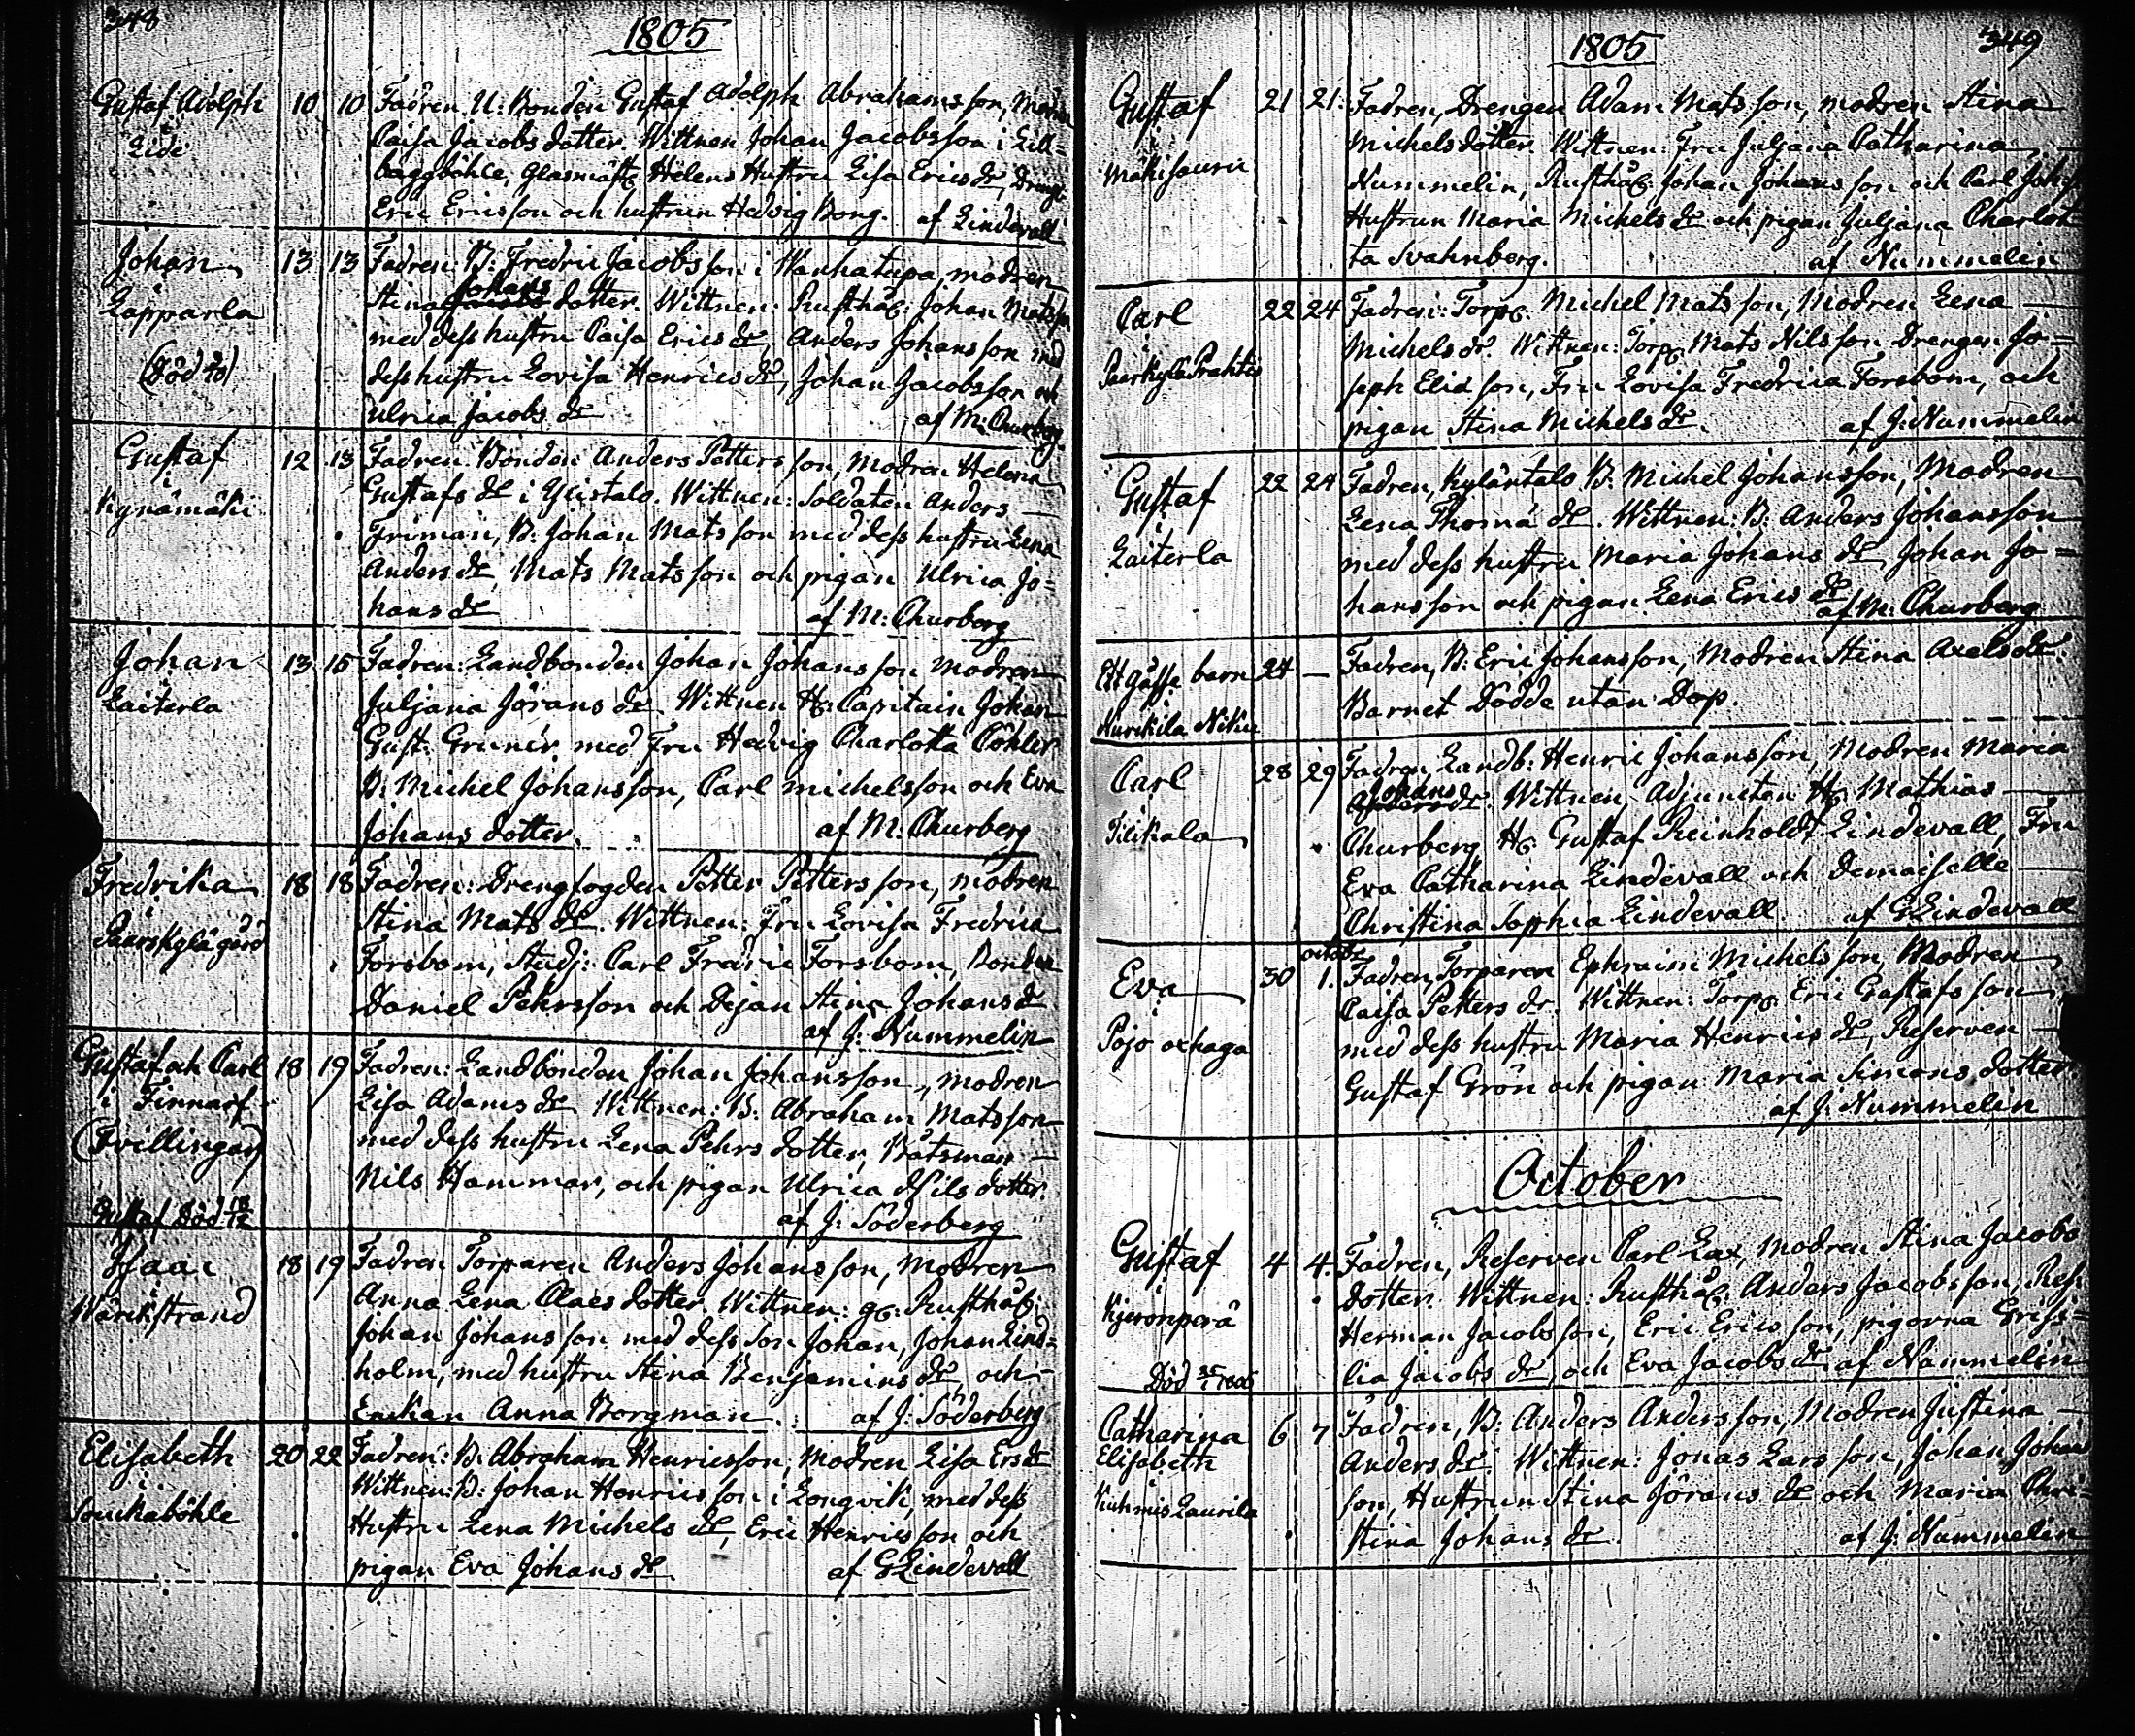 348
1805
Gustaf Adolph
i
Lidi
10 10 Fadren, U: Bonden Gustaf Adolph Abrahamsson, Modren
Caisa Jacobs dotter. Wittnen Johan Jacobsson i Lill=
baggböhle, Glasmäst: Helens Hustru Lisa Ericsdr, Dreng:
Eric Ericsson och hustrun Hedvig Bong. af Lindevall
Johan
i
Lapparla
(Död)
13 13 Fadren: B: Fredric Jacobsson i Wanhatupa, modren
Stina Johans dotter. Wittnen: Rusthål: Johan Matsson
med dess hustru Caisa Ericsdr, Anders Johansson med
dess hustru Lovisa Henricsdr, Johan Jacobsson och
Ulrica Jacobs dr af M: Churberg
Gustaf
i
Kynämäki
12 13 Fadren: Bonden Anders Pettersson, Modren Helena
Gustafs dr i Ylistalo. Wittnen: Soldaten Anders
Friman, B: Johan Matsson med dess hustru Lena
Anders dr, Mats Matsson och pigan Ulrica Jo=
hans dr af M: Churberg
Johan
i
Laiterla
13 15 Fadren: Landbonden Johan Johansson Modren
Juljana Jörans dr. Wittnen H: Capitain Johan
Gust: Gruner med Fru Hedvig Charlotta Cöhler
B: Michel Johansson, Carl Michelsson och Eva
Johans dotter. af M: Churberg
Fredrika
i
Paerskylä gård
18 18 Fadren: Drengfogden Petter Pettersson, modren
Stina Mats dr. Wittnen: Fru Lovisa Fredrica
Forsbom, Studj: Carl Fredric Forsbom, Bonden
Daniel Pehrsson och Dejan Stina Johansdr
af J: Nummelin
Gustaf och Carl
i Finnarf
(Tvillingar)
Gustaf Död
18 19 Fadren: Landbonden Johan Johansson, modren
Lisa Adams dr Wittnen: B: Abraham Matsson
med dess hustru Lena Pehrs dotter, Båtsman
Nils Hammar, och pigan Ulrica Nils dotter.
af J: Söderberg
Isaac
i
Warikstrand
18 19 Fadren Torparen Anders Johansson, Modren
Anna Lena Claes dotter. Wittnen: g: Rusthål:
Johan Johansson med dess son Johan, Johan Lind=
holm, med hustru Stina Benjamins dr, och
Enckan Anna Borgman. af J: Söderberg
Elisabeth
i
Sonckaböhle
20 22 Fadren: B: Abraham Henricsson, Modren Lisa Ersdr
Wittnen: B: Johan Henricsson i Longvik, med dess
Hustru Lena Michels dr, Eric Henricsson och
pigan Eva Johans dr af GLindevall
1805
349
Gustaf
i
Mäkisauru
21 21. Fadren, Drengen Adam Matsson, modren Stina
Michelsdotter. Wittnen: Fru Juljana Catharina
Nummelin, Rusthål: Johan Johansson och Carl Johs
Hustrun Maria Michels dr och pigan Juljana Charlot
ta Svahnberg. af Nummelin
Carl
i
Paerkylä Prakti
22 24 Fadren: Torp: Michel Matsson, Modren Lena
Michelsdr. Wittnen: Torp: Mats Nilsson Drengen Jo=
seph Eliasson, Fru Lovisa Fredrica Forsbom, och
pigan Stina Michelsdr. af J: Nummelin
Gustaf
i
Laiterla
22 24 Fadren, Kyläntalo B: Michel Johansson, Modren
Lena Thomä dr. Wittnen: B: Anders Johansson
med dess hustru Maria Johans dr, Johan Jo=
hansson och pigan Lena Erics dr
af M: Churberg
Ett gåsse barn
i
Nurckila Niku
24 — Fadren, B: Eric Johansson, Modren Stina Axelsdr.
Barnet Dödde utan Dop.
Carl
i
Tilikala
28 29 Fadren Landb: Henric Johansson, Modren Maria
Johans dr. Wittnen, Adjuncten H: Mathias
Churberg H: Gustaf Reinholdt Lindevall, Fru
Eva Catharina Lindevall och Demaiselle
Christina Sophia Lindevall af GLindevall
Eva
i
Pojo
30 octobr 1. Fadren, Torparen Ephraim Michelsson, Modren
Caisa Petters dr. Wittnen: Torp: Eric Gustafsson
med dess hustru Maria Henrics dr, Reserven
Gustaf Grön och pigan Maria Simons dotter
af J: Nummelin
October
Gustaf
i
Kjeronperä
Död
4 4. Fadren, Reserven Carl Lax, Modren Stina Jacobs
dotter. Wittnen: Rusthål: Anders Jacobsson, Res:
Herman Jacobsson, Eric Ericsson, pigorna Griss=
lia Jacobs dr, och Eva Jacobs dr af Nummelin
Catharina
Elisabeth
i
Kuhmis Laurila
6 7 Fadren, B: Anders Andersson, Modren Justina
Anders dr. Wittnen: Jonas Larsson, Johan Johans
son, Hustrun Stina Jörans dr och Maria Chri=
stina Johans dr. af J: Nummelin